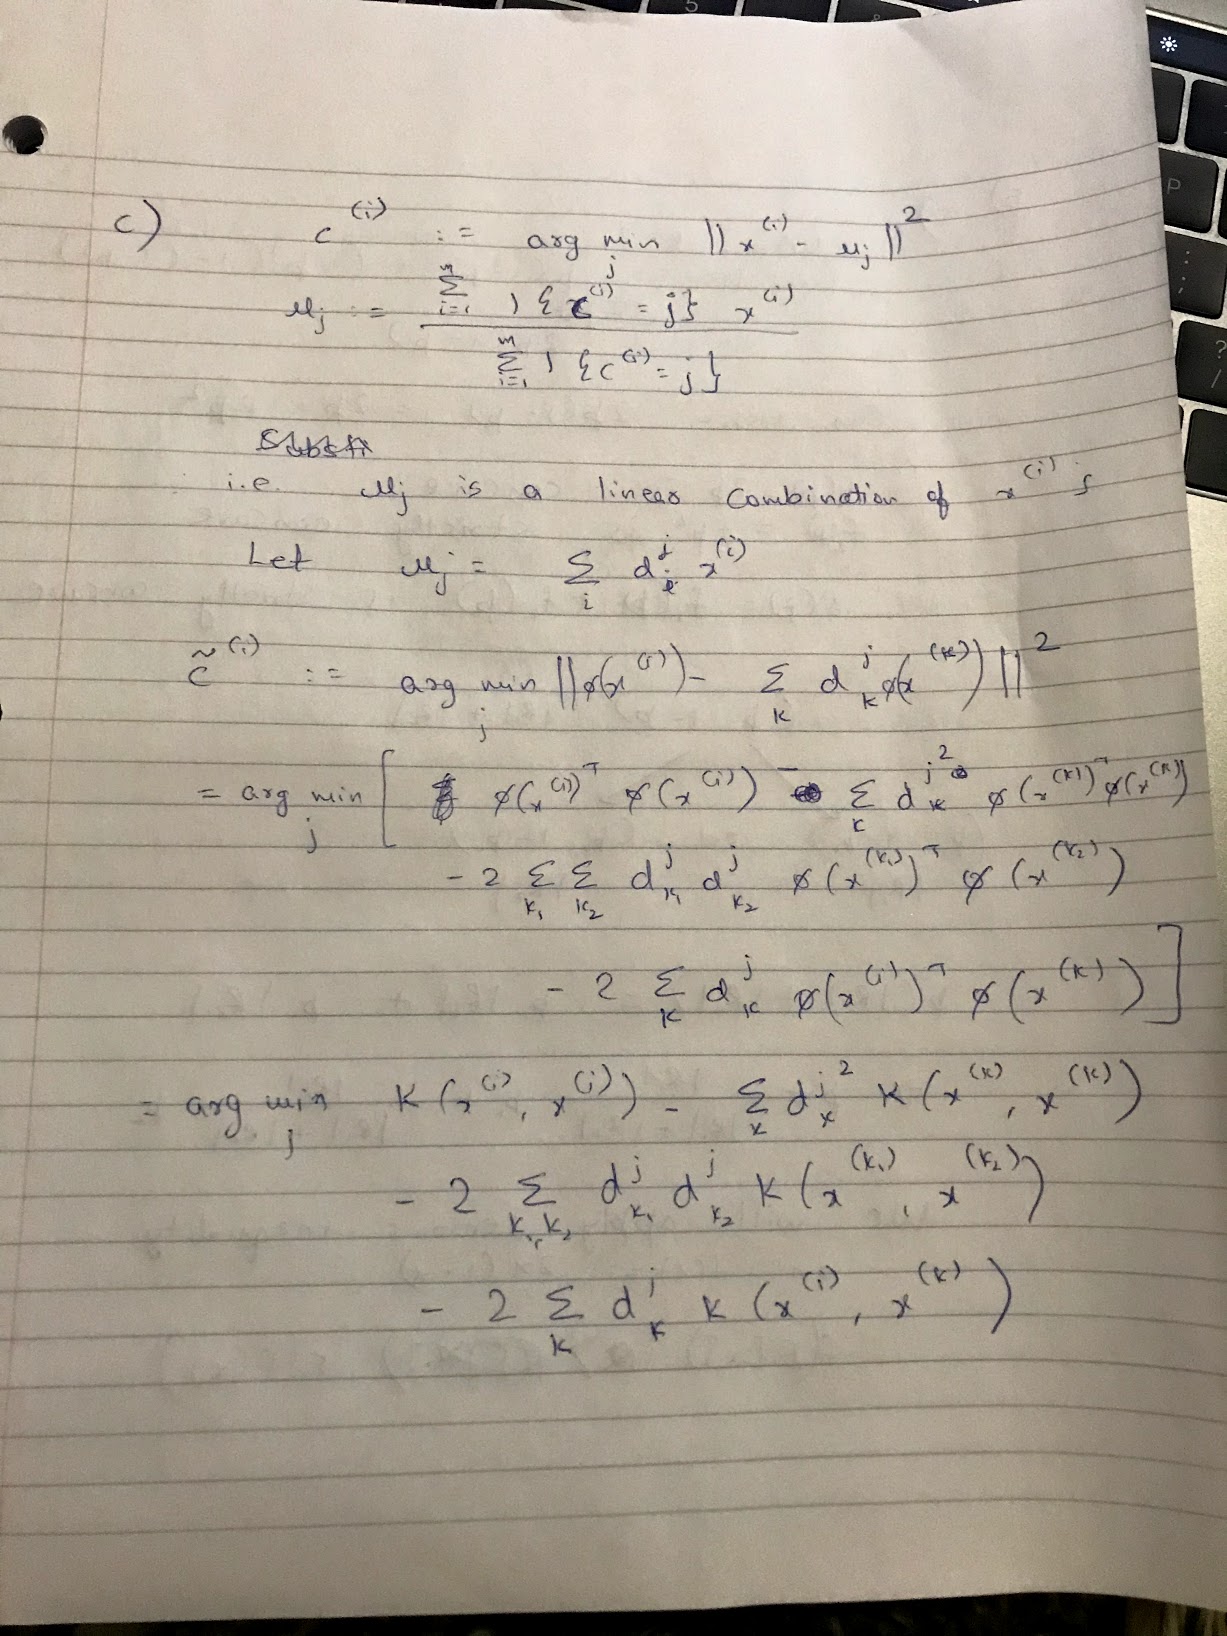 c) c^(i) := arg min_j ||x^(i) - μ_j||^2
μ_j := Σ_{i=1}^m 1{c^(i) = j} x^(i)
Σ_{i=1}^m 1{c^(i) = j}
i.e. μ_j is a linear combination of x^(i) s
Let μ_j = Σ_i d_i^j x^(i)
c̃^(i) := arg min_j ||φ(x^(i)) - Σ_k d_k^j φ(x^(k))||^2
= arg min_j [ φ(x^(i))^T φ(x^(i)) - Σ_k d_k^{j 2} φ(x^(k))^T φ(x^(k))
- 2 Σ_{k_1} Σ_{k_2} d_{k_1}^j d_{k_2}^j φ(x^(k_1))^T φ(x^(k_2))
- 2 Σ_k d_k^j φ(x^(i))^T φ(x^(k)) ]
= arg min_j K(x^(i), x^(i)) - Σ_k d_k^{j 2} K(x^(k), x^(k))
- 2 Σ_{k_1, k_2} d_{k_1}^j d_{k_2}^j K(x^(k_1), x^(k_2))
- 2 Σ_k d_k^j K(x^(i), x^(k))